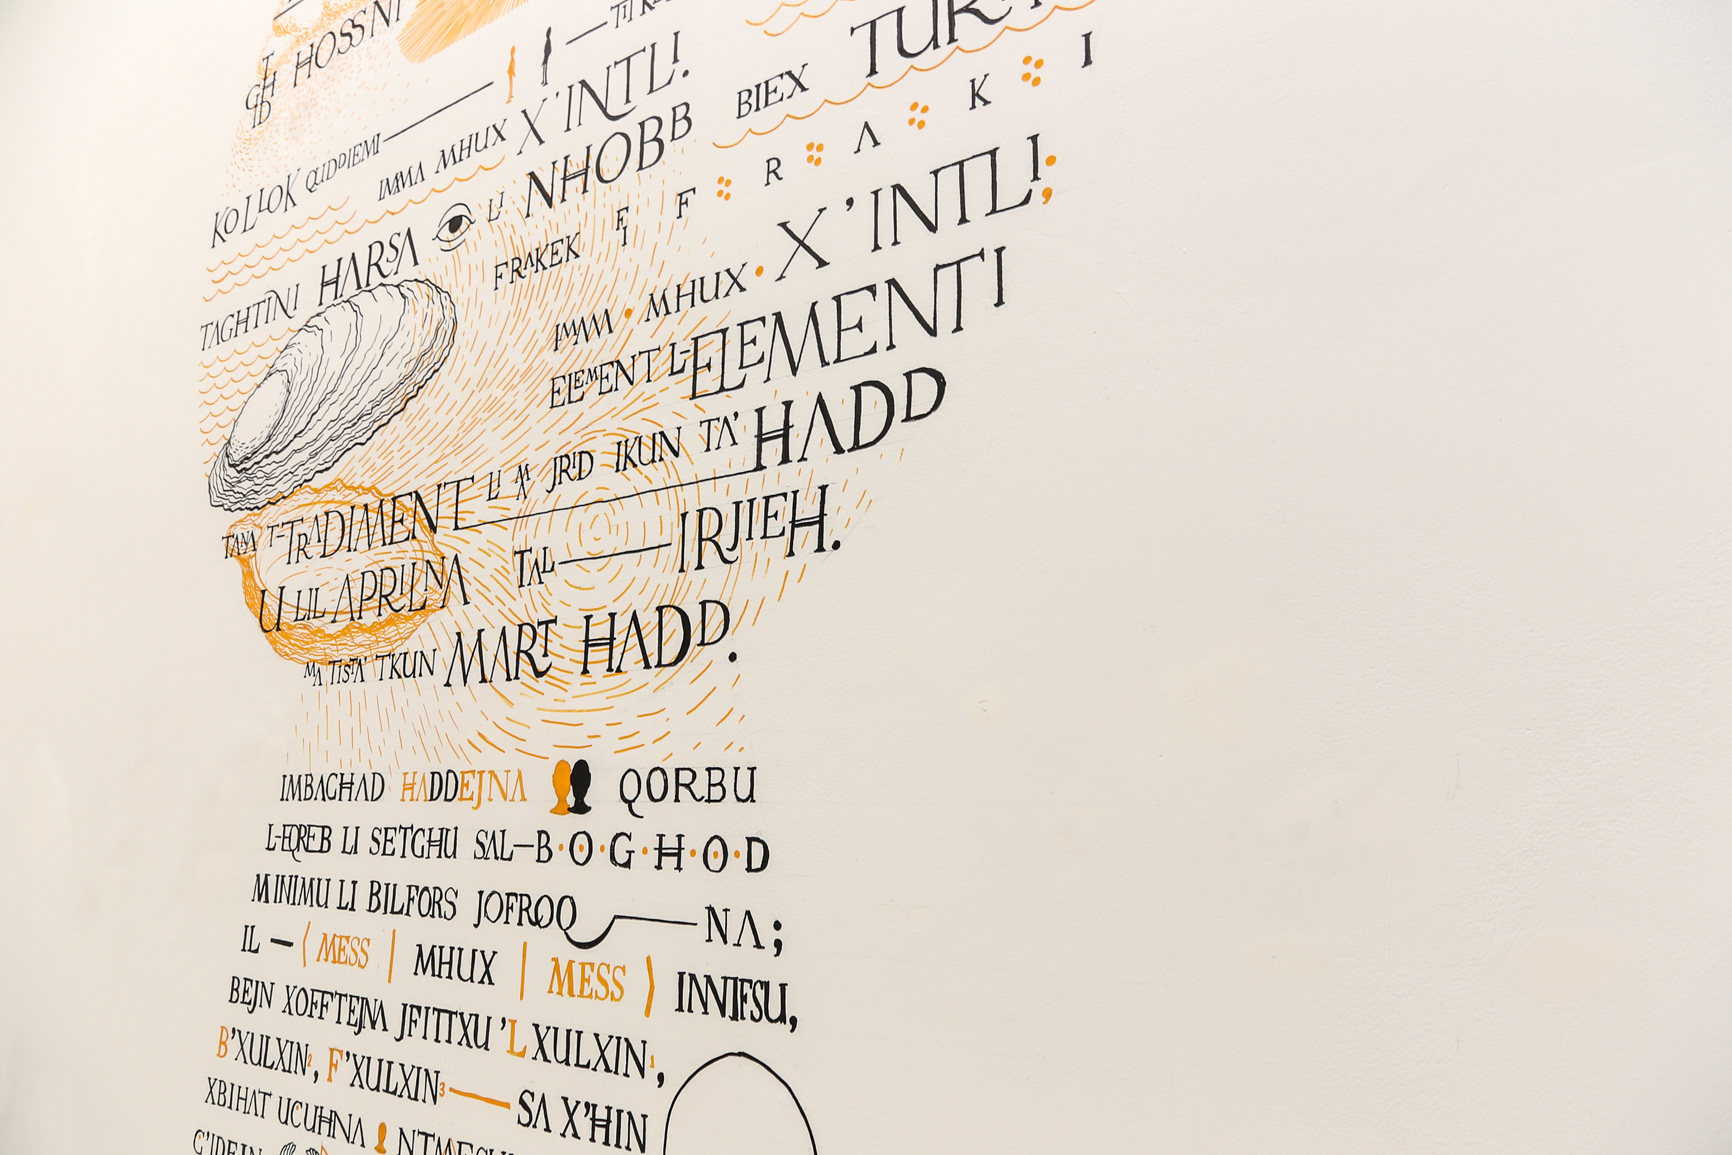 GĦID HOSSNI
KOLLOK QUDDIEMI
IMMA MHUX X'INTLI!
TAGĦTINI HARSA LI NHOBB BIEX
FRAKEK FI F R A K I
IMMA · MHUX · X'INTLI;
ELEMENT L-ELEMENTI
TANA T-TRADIMENT LI MA JRID IKUN TA' ĦADD
U LIL APRILNA TAL IRJIEĦ.
MA TISTA' TKUN MART ĦADD.
IMBAGĦAD ĦADDEJNA QORBU
L-EQREB LI SETGĦU SAL-B·O·G·Ħ·O·D
MINIMU LI BILFORS JOFROQ NA;
IL-⟨MESS | MHUX | MESS⟩ INNIFSU,
BEJN XOFFTEJNA JFITTXU 'L XULXIN¹,
B'XULXIN², F'XULXIN³ SA X'ĦIN
XBIHAT UCUĦNA